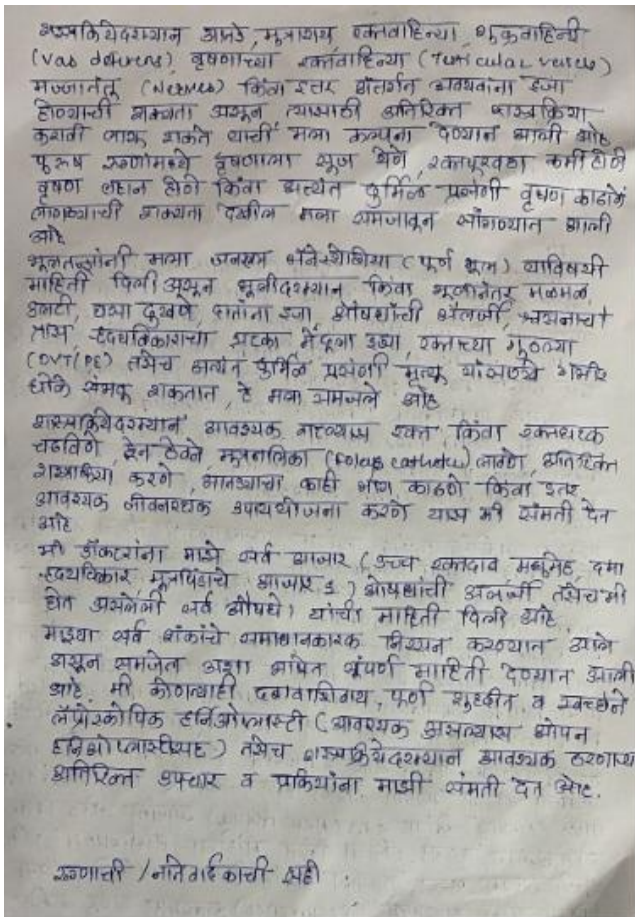 शस्त्रक्रियेदरम्यान आतडे, मूत्राशय, रक्तवाहिन्या, शुक्रवाहिनी
(Vas deferens) वृषणाच्या रक्तवाहिन्या (Testicular vessels)
मज्जातंतू (Nerves) किंवा इतर अंतर्गत अवयवांना इजा
होण्याची शक्यता असून, त्यासाठी अतिरिक्त शस्त्रक्रिया
करावी लागू शकते याची मला कल्पना देण्यात आली आहे
पुरुष रुग्णांमध्ये वृषणाला सूज येणे, रक्तपुरवठा कमी होणे
वृषण लहान होणे किंवा अत्यंत दुर्मिळ प्रसंगी वृषण काढावे
लागण्याची शक्यता देखील मला समजावून सांगण्यात आली
आहे
भूलतज्ज्ञांनी मला जनरल अ‍ॅनेस्थेशिया (पूर्ण भूल) याविषयी
माहिती दिली असून भूलीदरम्यान किंवा भूलीनंतर मळमळ,
उलटी, घसा दुखणे, दातांना इजा, औषधांची अ‍ॅलर्जी, श्वसनाचा
त्रास, हृदयविकाराचा झटका मेंदूला इजा, रक्ताच्या गुठळ्या
(DVT/PE) तसेच अत्यंत दुर्मिळ प्रसंगी मृत्यू यांसारखे गंभीर
धोके संभवू शकतात, हे मला समजले आहे
शस्त्रक्रियेदरम्यान आवश्यक वाटल्यास रक्त किंवा रक्तघटक
चढविणे, ड्रेन ठेवणे मूत्रनलिका (Foleys catheter) लावणे, अतिरिक्त
शस्त्रक्रिया करणे, आतड्याचा काही भाग काढणे किंवा इतर
आवश्यक जीवनरक्षक उपाययोजना करणे यास मी संमती देत
आहे
मी डॉक्टरांना माझे सर्व आजार (उच्च रक्तदाब मधुमेह, दमा
हृदयविकार मूत्रपिंडाचे आजार इ) औषधांची अलर्जी तसेच मी
घेत असलेली सर्व औषधे) यांची माहिती दिली आहे
माझ्या सर्व शंकांचे समाधानकारक निरसन करण्यात आले
असून समजेल अशा भाषेत संपूर्ण माहिती देण्यात आली
आहे. मी कोणत्याही दबावाशिवाय, पूर्ण शुद्धीत व स्वच्छेने
लॅप्रोस्कोपिक हर्निओप्लास्टी (आवश्यक असल्यास ओपन
हर्निओप्लास्टीसह) तसेच शस्त्रक्रियेदरम्यान आवश्यक ठरणाऱ्या
अतिरिक्त उपचार व प्रक्रियांना माझी संमती देत आहे.
रुग्णाची / नातेवाईकाची सही